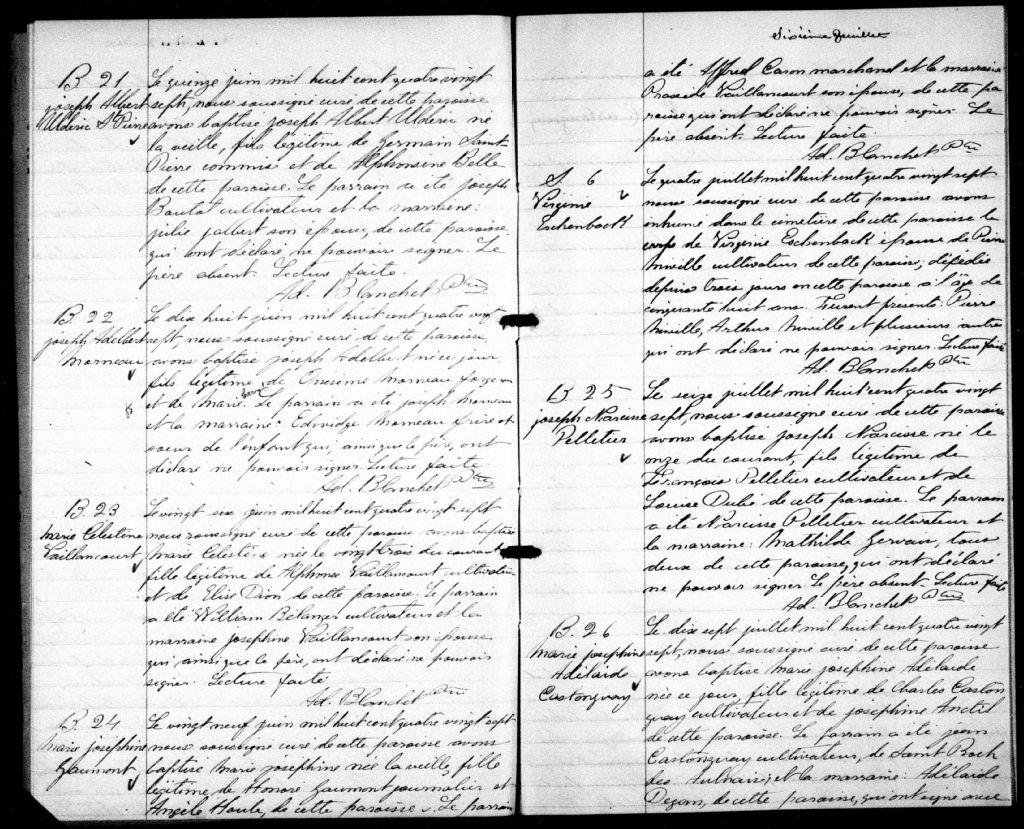 B. 21
joseph Albert
Ulderic St Pierre
Le quinze juin mil huit cent quatre vingt
sept, nous soussigné curé de cette paroisse
avons baptisé joseph Albert Ulderic né
la veille, fils légitime de Germain Saint-
Pierre commis et de Alphonsine Belle
de cette paroisse. Le parrain a été joseph
cultivateur et la marraine:
julie jalbert son épouse, de cette paroisse,
qui ont déclaré ne pouvoir signer. Le
père absent. Lecture faite.
Ad. Blanchet Ptre
B. 22
joseph Adelbert
Morneau
Le dix huit juin mil huit cent quatre vingt
sept, nous soussigné curé de cette paroisse,
avons baptisé joseph Adelbert né ce jour,
fils légitime de Onesime Morneau forgeron
et de Marie. Le parrain a été joseph Morneau
et la marraine: Edwidge Morneau frère et
soeur de l'enfant qui, ainsi que le père, ont
déclaré ne pouvoir signer. Lecture faite.
Ad. Blanchet Ptre
B. 23
Marie Celestine
Vaillancourt
Le vingt six juin mil huit cent quatre vingt sept
nous soussigné curé de cette paroisse avons baptisé
Marie née le vingt trois du courant
fille légitime de Alphonse Vaillancourt cultivateur
et de Elise Dion de cette paroisse. Le parrain
a été William Bélanger cultivateur et la
marraine josephine Vaillancourt son épouse
qui ainsi que le père, ont déclaré ne pouvoir
signer. Lecture faite
Ad. Blanchet Ptre
B. 24
Marie josephine
Gaumont
Le vingt neuf juin mil huit cent quatre vingt sept
nous soussigné curé de cette paroisse avons
baptisé Marie josephine née la veille, fille
légitime de Honoré Gaumont journalier et
Angèle Houle, de cette paroisse. Le parrain
Sixième feuillet
a été Alfred Caron marchand et la marraine
Praxède Vaillancourt son épouse, de cette pa
roisse qui ont déclaré ne pouvoir signer. Le
père absent. Lecture faite
Ad. Blanchet Ptre
S. 6
Virginie
Eschenback
Le quatre juillet mil huit cent quatre vingt sept
nous soussigné curé de cette paroisse avons
inhumé dans le cimetière de cette paroisse le
corps de Virginie Eschenback épouse de Pierre
Miville cultivateur de cette paroisse, décédée
depuis trois jours en cette paroisse à l'âge de
cinquante huit ans. Furent présents: Pierre
Miville, Arthur Miville et plusieurs autres
qui ont déclaré ne pouvoir signer. Lecture faite
Ad. Blanchet Ptre
B. 25
joseph Narcisse
Pelletier
Le seize juillet mil huit cent quatre vingt
sept, nous soussigné curé de cette paroisse
avons baptisé joseph Narcisse né le
onze du courant, fils légitime de
François Pelletier cultivateur et de
Louise Dubé de cette paroisse. Le parrain
a été Narcisse Pelletier cultivateur et
la marraine: Mathilde Gervais, tous
deux de cette paroisse, qui ont déclaré
ne pouvoir signer. Le père absent. Lecture faite
Ad. Blanchet Ptre
B. 26
Marie josephine
Adélaide
Castonguay
Le dix sept juillet mil huit cent quatre vingt
sept, nous soussigné curé de cette paroisse
avons baptisé Marie josephine Adélaide
née ce jour, fille légitime de Charles Caston
guay cultivateur et de josephine Anctil
de cette paroisse. Le parrain a été jean
Castonguay cultivateur, de Saint Roch
des Aulnaies; et la marraine: Adélaide
de cette paroisse, qui ont signé avec